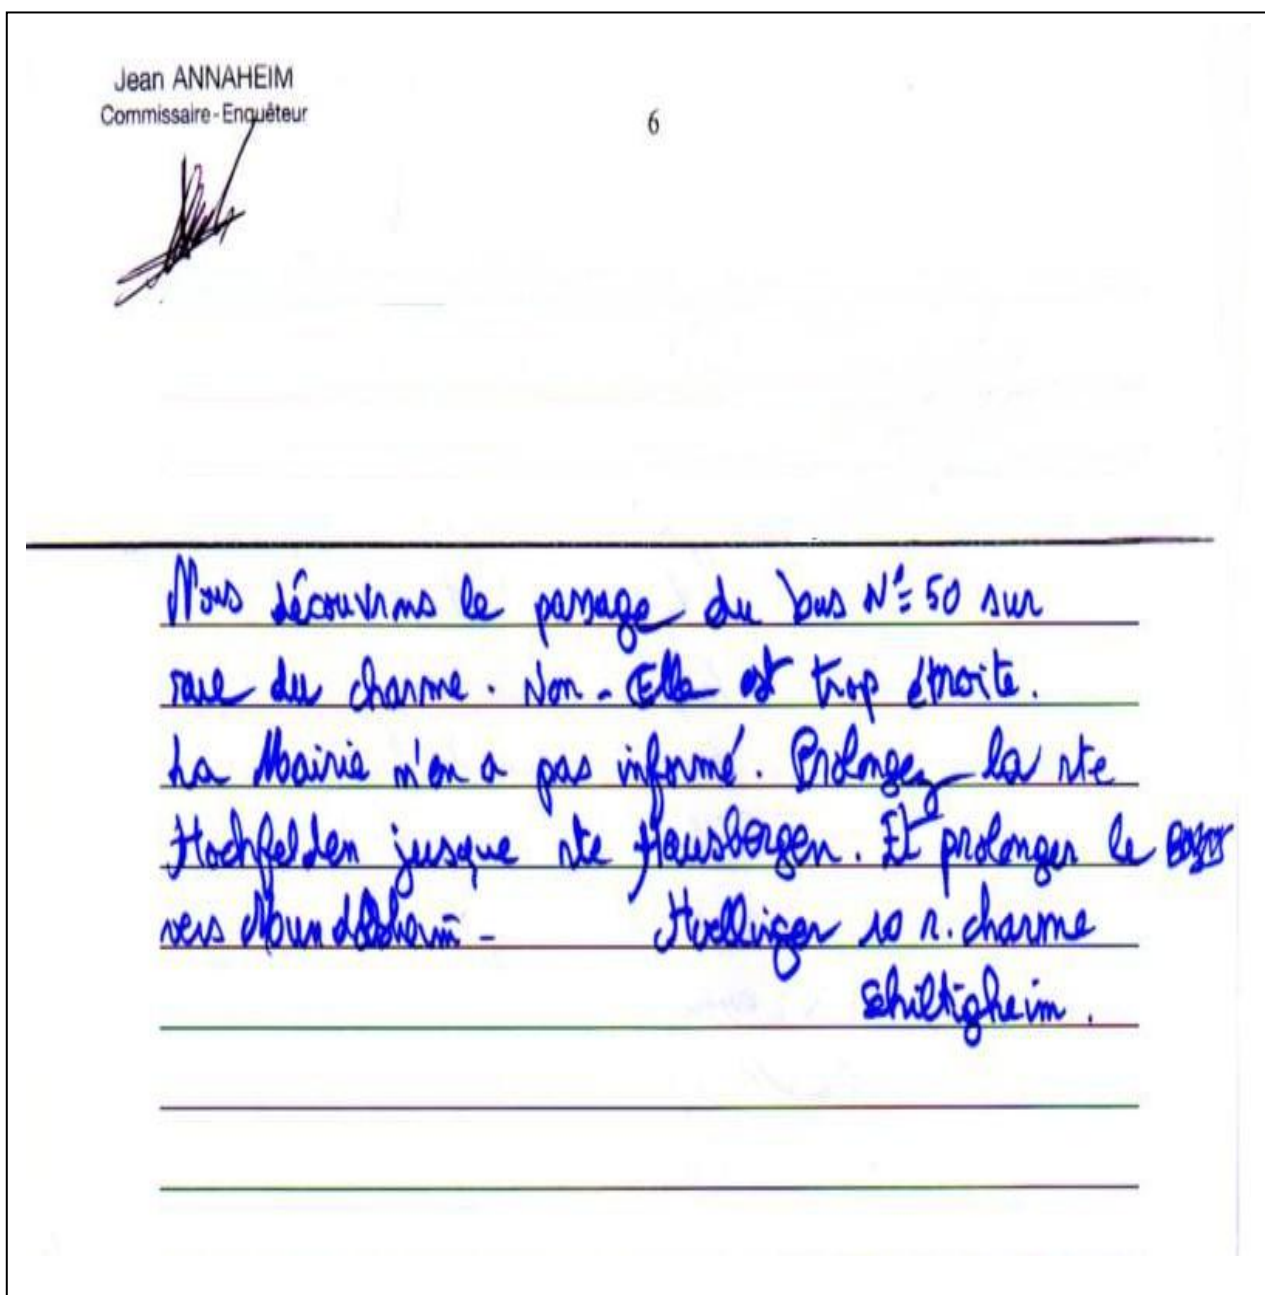 Jean ANNAHEIM
Commissaire-Enquêteur
6
Nous découvrons le passage du bus N° 50 sur
rue du charme. Non - Elle est trop étroite.
La Mairie n'en a pas informé. Prolongez la rte
Hochfelden jusque rte Hausbergen. Et prolonger le
vers Mundolsheim - 10 r. charme
Schiltigheim.